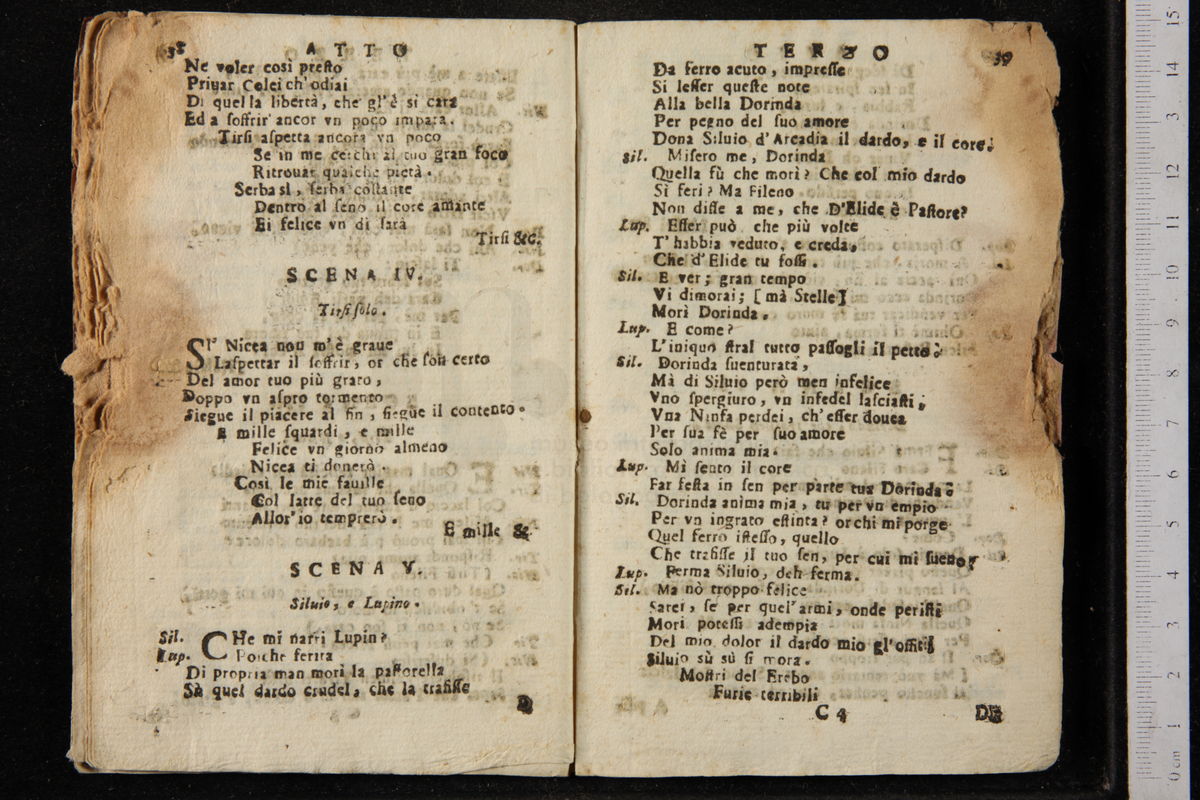 38 ATTO
Ne voler così presto
Priuar Colei ch'odiai
Di quella libertà, che gl'è sì cara
Ed a soffrir' ancor vn poco impara.
Tirsi aspetta ancora vn poco
Se in me cerchi al tuo gran foco
Ritrouar qualche pietà.
Serba sì, serba costante
Dentro al seno il core amante
Ei felice vn dì sarà
Tirsi &c.
SCENA IV.
Tirsi solo.
SI' Nicea non m'è graue
L'aspettar il soffrir, or che son certo
Del amor tuo più grato,
Doppo vn aspro tormento
Siegue il piacere al fin, siegue il contento.
E mille squardi, e mille
Felice vn giorno almeno
Nicea ti donerò.
Così le mie fauille
Col latte del tuo seno
Allor'io temprerò.
E mille &
SCENA V.
Siluio, e Lupino.
Sil. CHe mi narri Lupin?
Lup. Poiche ferita
Di propria man morì la pastorella
Sà quel dardo crudel, che la trafisse
D
TERZO 39
Da ferro acuto, impresse
Si lesser queste note
Alla bella Dorinda
Per pegno del suo amore
Dona Siluio d'Arcadia il dardo, e il core.
Sil. Misero me, Dorinda
Quella fù che morì? Che col mio dardo
Sì ferì? Ma Fileno
Non disse a me, che D'Elide è Pastore?
Lup. Esser può che più volte
T'habbia veduto, e creda,
Che d'Elide tu fossi.
Sil. E ver; gran tempo
Vi dimorai; [mà Stelle]
Morì Dorinda.
Lup. E come?
L'iniquo stral tutto passogli il petto.
Sil. Dorinda suenturata,
Mà di Siluio però men infelice
Vno spergiuro, vn infedel lasciasti;
Vna Ninfa perdei, ch'esser douea
Per sua fè per suo amore
Solo anima mia.
Lup. Mi sento il core
Far festa in sen per parte tua Dorinda.
Sil. Dorinda anima mia, tu per vn empio
Per vn ingrato estinta? or chi mi porge
Quel ferro istesso, quello
Che trafisse il tuo sen, per cui mi sueno?
Lup. Ferma Siluio, deh ferma.
Sil. Ma nò troppo felice
Sarei, se per quel'armi, onde peristi
Mori potessi adempia
Del mio dolor il dardo mio gl'offitii
Siluio sù sù si mora.
Mostri del Erebo
Furie terribili
C 4 DE